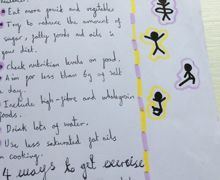 Eat more fruit and vegetable
Try to reduce the amount of
sugar, fatty foods and oils in
your diet.
check nutrition levels on food.
Aim for less than 6g of salt
a day.
Include high-fibre and wholegrain
foods.
Drink lots of water.
Use less saturated fat oils
in cooking.
4 ways to get exercise